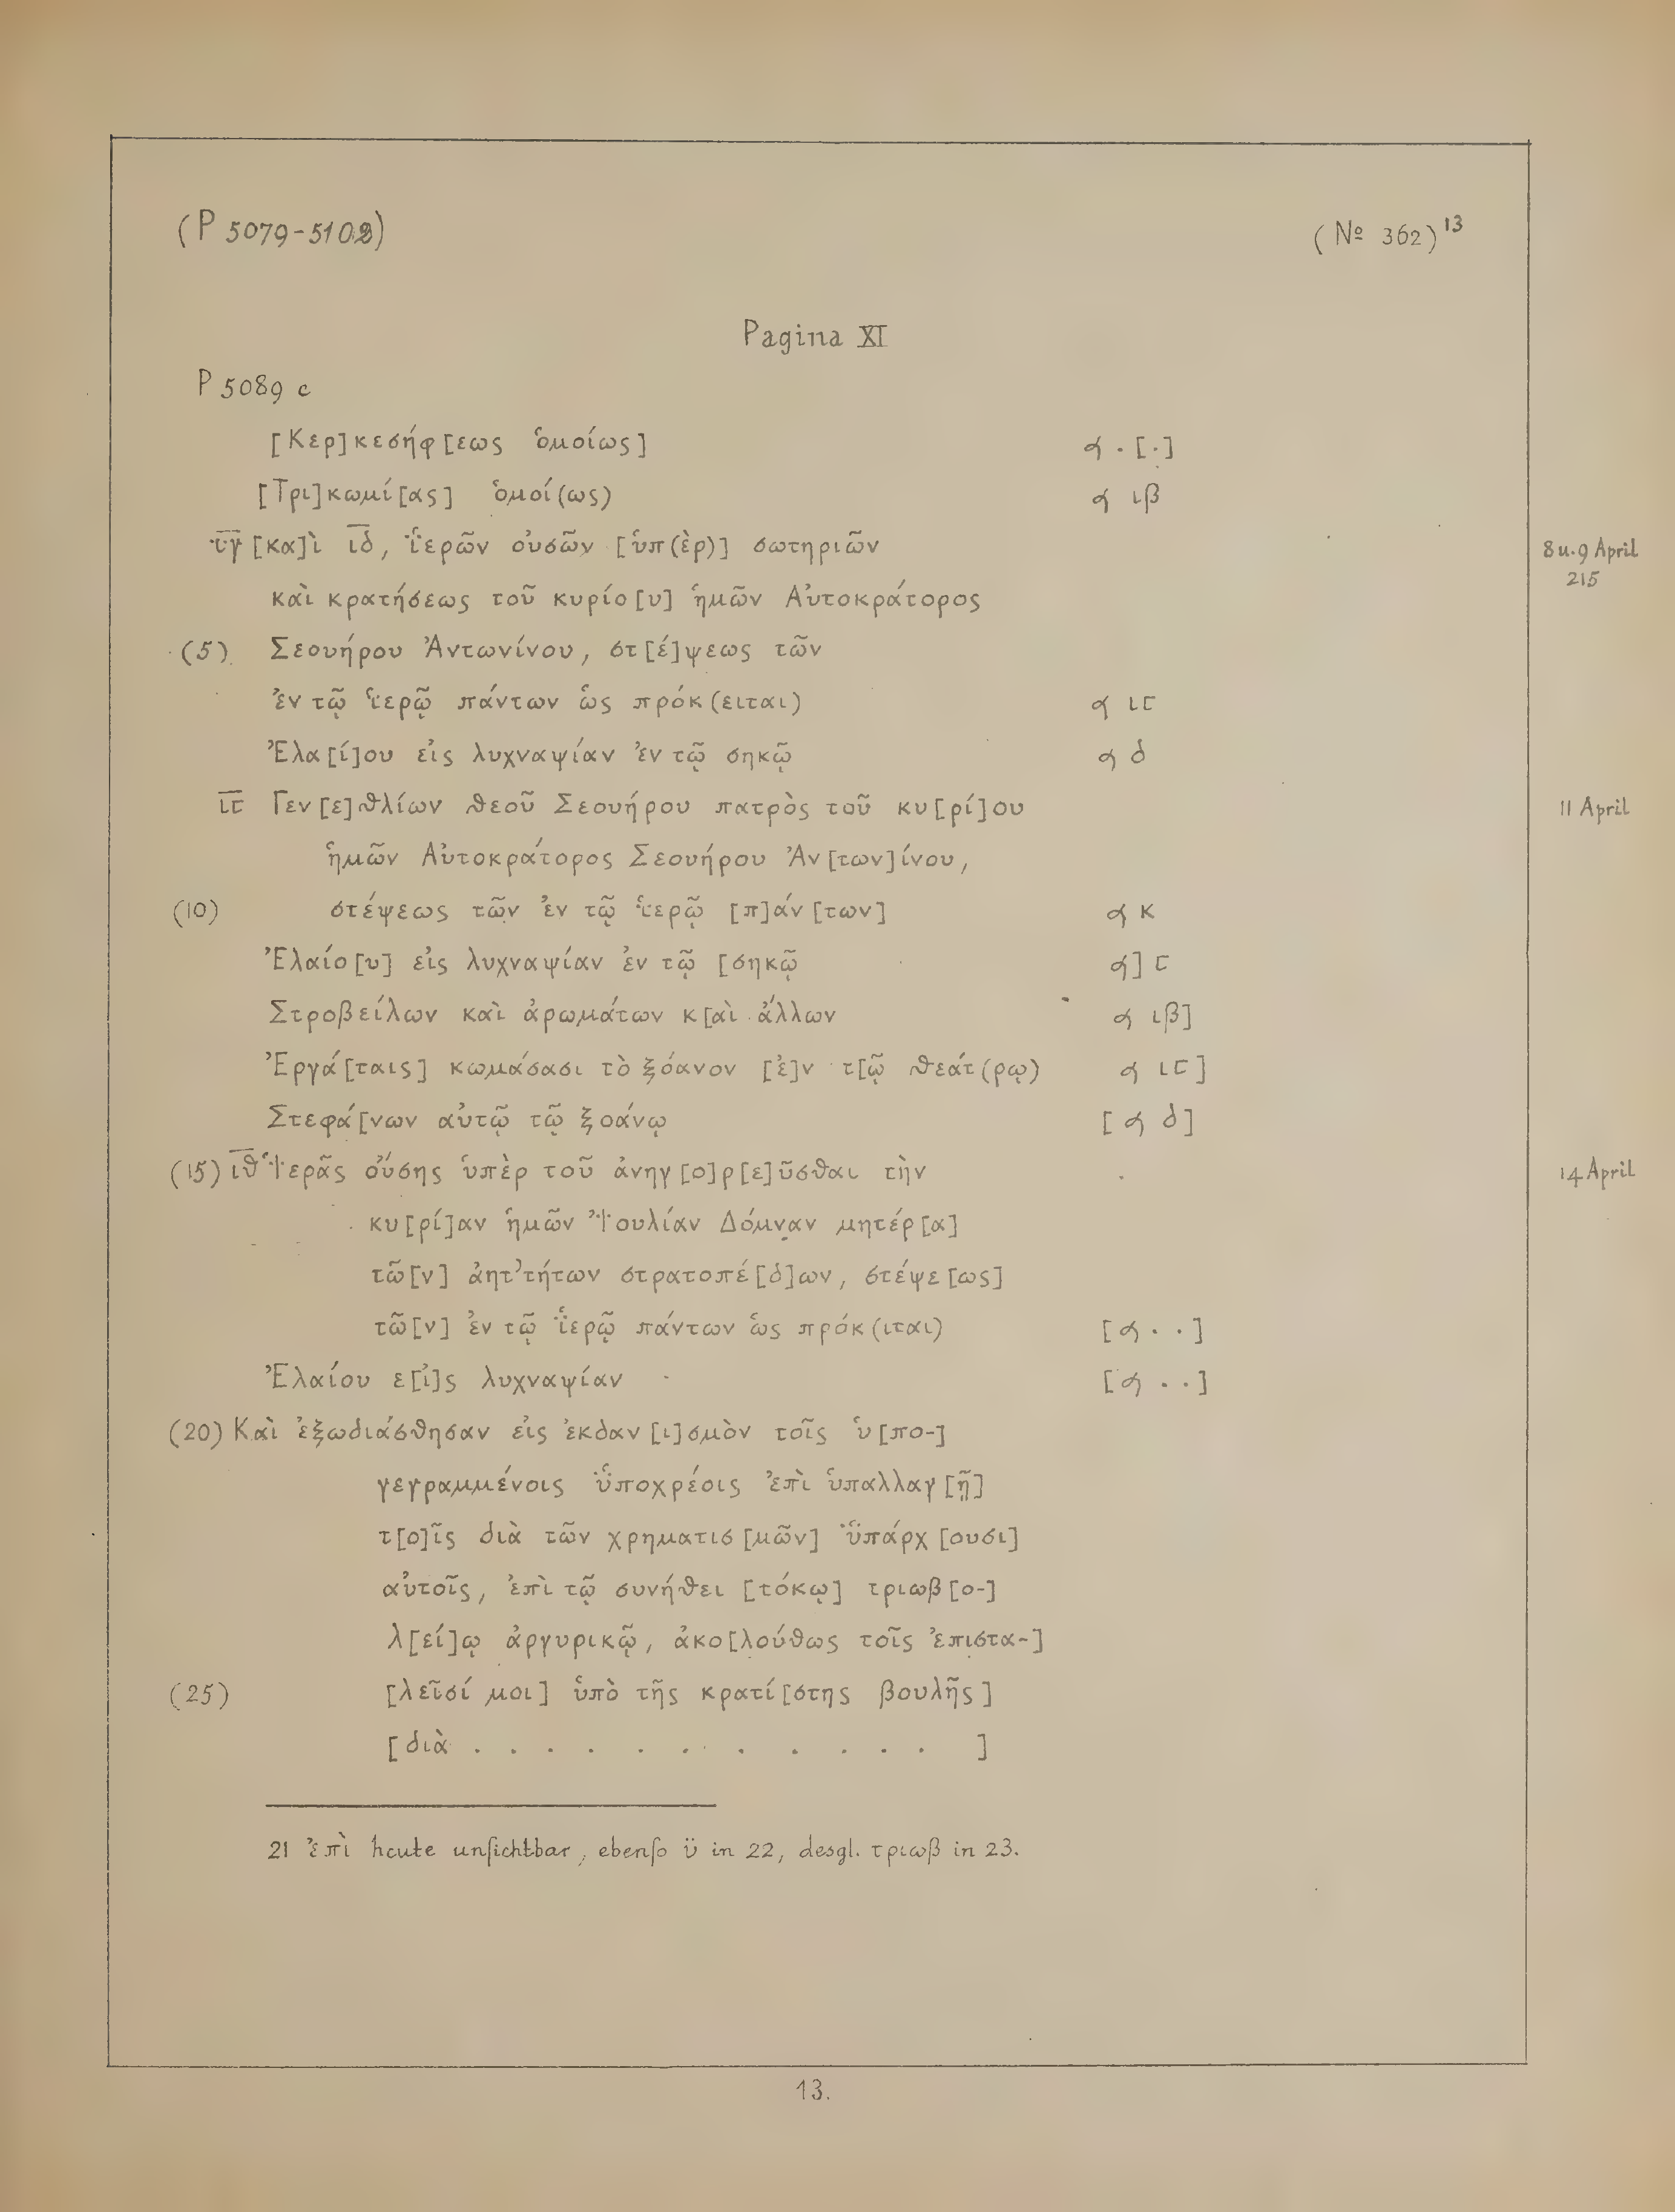 (P 5079-5102)
(№ 362) 13
Pagina XI
P 5089 c
[Κερ]κεσήφ[εως ὁμοίως] 𐅻 . [.]
[Τρι]κωμί[ας] ὁμοί(ως) 𐅻 ιβ
ι̅γ̅ [κα]ὶ ι̅δ̅, ἱ̈ερῶν οὐσῶν [ὑπ(ὲρ)] σωτηριῶν 8 u. 9 April
215
καὶ κρατήσεως τοῦ κυρίο[υ] ἡμῶν Αὐτοκράτορος
(5) Σεουήρου Ἀντωνίνου, στ[έ]ψεως τῶν
ἐν τῷ ἱερῷ πάντων ὡς πρόκ(ειται) 𐅻 ιϛ
Ἐλα[ί]ου εἰς λυχναψίαν ἐν τῷ σηκῷ 𐅻 δ
ι̅ϛ̅ Γεν[ε]θλίων θεοῦ Σεουήρου πατρὸς τοῦ κυ[ρί]ου 11 April
ἡμῶν Αὐτοκράτορος Σεουήρου Ἀν[των]ίνου,
(10) στέψεως τῶν ἐν τῷ ἱερῷ [π]άν[των] 𐅻 κ
Ἐλαίο[υ] εἰς λυχναψίαν ἐν τῷ [σηκῷ 𐅻] ϛ
Στροβείλων καὶ ἀρωμάτων κ[αὶ ἄλλων 𐅻 ιβ]
Ἐργά[ταις] κωμάσασι τὸ ξόανον [ἐ]ν τ[ῷ θεάτ(ρῳ) 𐅻 ιϛ]
Στεφά[νων αὐτῷ τῷ ξοάνῳ [𐅻 δ]
(15) ι̅θ̅ Ἱ̈ερᾶς οὔσης ὑπὲρ τοῦ ἀνηγ[ο]ρ[ε]ῦσθαι τὴν 14 April
κυ[ρί]αν ἡμῶν Ἰ̈ουλίαν Δόμναν μητέρ[α]
τῶ[ν] ἀητ’τήτων στρατοπέ[δ]ων, στέψε[ως]
τῶ[ν] ἐν τῷ ἱ̈ερῷ πάντων ὡς πρόκ(ιται) [𐅻 . .]
Ἐλαίου ε[ἰ]ς λυχναψίαν [𐅻 . .]
(20) Καὶ ἐξωδιάσθησαν εἰς ἐκδαν[ι]σμὸν τοῖς ὑ[πο-]
γεγραμμένοις ὑ̈ποχρέοις ἐπὶ ὑπαλλαγ[ῇ]
τ[ο]ῖς διὰ τῶν χρηματισ[μῶν] ὑ̈πάρχ[ουσι]
αὐτοῖς, ἐπὶ τῷ συνήθει [τόκῳ] τριωβ[ο-]
λ[εί]ῳ ἀργυρικῷ, ἀκο[λούθως τοῖς ἐπιστα-]
(25) [λεῖσί μοι] ὑπὸ τῆς κρατί[στης βουλῆς]
[διὰ . . . . . . . . . . . . ]
21 ἐπὶ heute unſichtbar, ebenſo ϋ in 22, desgl. τριωβ in 23.
13.